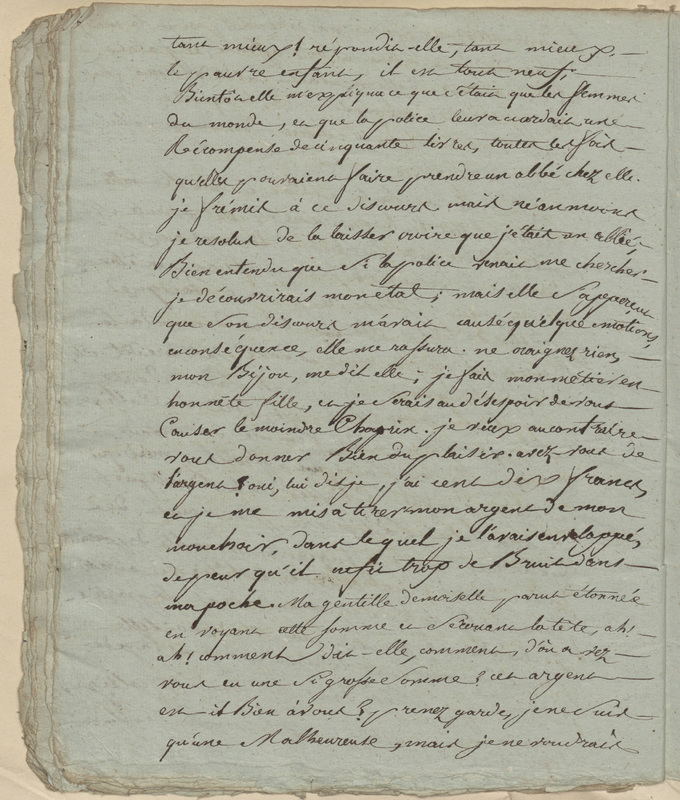 tant mieux! répondit-elle, tant mieux,
le pauvre enfant, il est tout neuf;
Bientôt elle m'expliqua ce que c'était que les femmes
du monde, et que la police leur accordait une
Récompense de cinquante livres, toutes les fois
qu'elles pouvaient faire prendre un abbé chez elle.
je frémis à ce discours. mais néanmoins
je resolus de la laisser croire que j'étais un abbé,
Bien entendu que si la police venait me chercher
je découvrirais mon état; mais elle s'apperçut
que son discours m'avait causé quelque émotions,
en conséquence, elle me rassura. ne craignez rien,
mon Bijou, me dit elle; je fais mon métier en
honnête fille, et je serais au désespoir de vous
Causer le moindre Chagrin. je veux au contraire
vous donner Bien du plaisir. avez-vous de
l'argent? oui, lui dis je, j'ai cent dix francs,
et je me mis à tirer mon argent de mon
mouchoir, dans lequel je l'avais enveloppé,
de peur qu'il ne fit trop de Bruit dans
ma poche. Ma gentille demoiselle parut étonnée
en voyant cette somme et secouant la tête, ah!
ah! comment dit-elle, comment, d'où avez-
vous eu une si grosse somme? cet argent
est il Bien à vous? prenez garde, je ne suis
qu'une Malheureuse, mais je ne voudrais